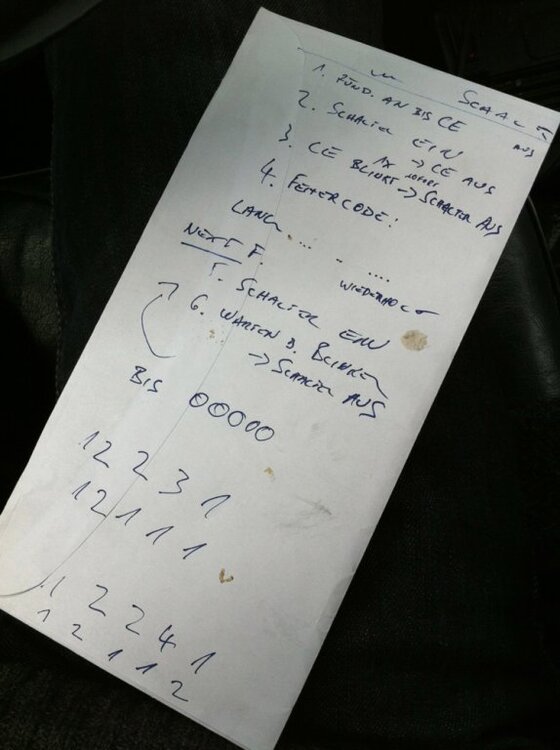 SCHALT
AUS
1. ZÜND. AN BIS CE
2. SCHALTER EIN
→ CE AUS
3. CE BLINKT 1X SOFORT → SCHALTER AUS
4. FEHLERCODE:
LANG ... - ....
WIEDERHOLT
NEXT F.
5. SCHALTER EIN
6. WARTEN B. BLINKEN
→ SCHALTER AUS
BIS 00000
12 2 3 1
12 1 1 1
1 2 2 4 1
1 2 1 1 2